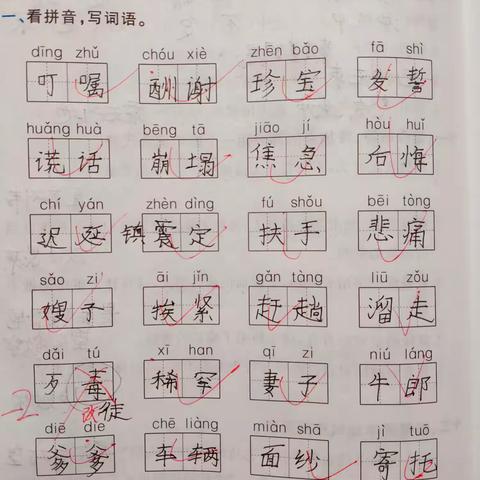 一、看拼音，写词语。
dīng zhǔ chóu xiè zhēn bǎo fā shì
叮嘱 酬谢 珍宝 发誓
huǎng huà bēng tā jiāo jí hòu huǐ
谎话 崩塌 焦急 后悔
chí yán zhèn dìng fú shǒu bēi tòng
迟延 镇震定 扶手 悲痛
sǎo zi āi jǐn gǎn tàng liū zǒu
嫂子 挨紧 赶趟 溜走
dǎi tú xī han qī zi niú láng
歹毒 稀罕 妻子 牛郎
-2 改徒
diē die chē liàng miàn shā jì tuō
爹爹 车辆 面纱 寄托